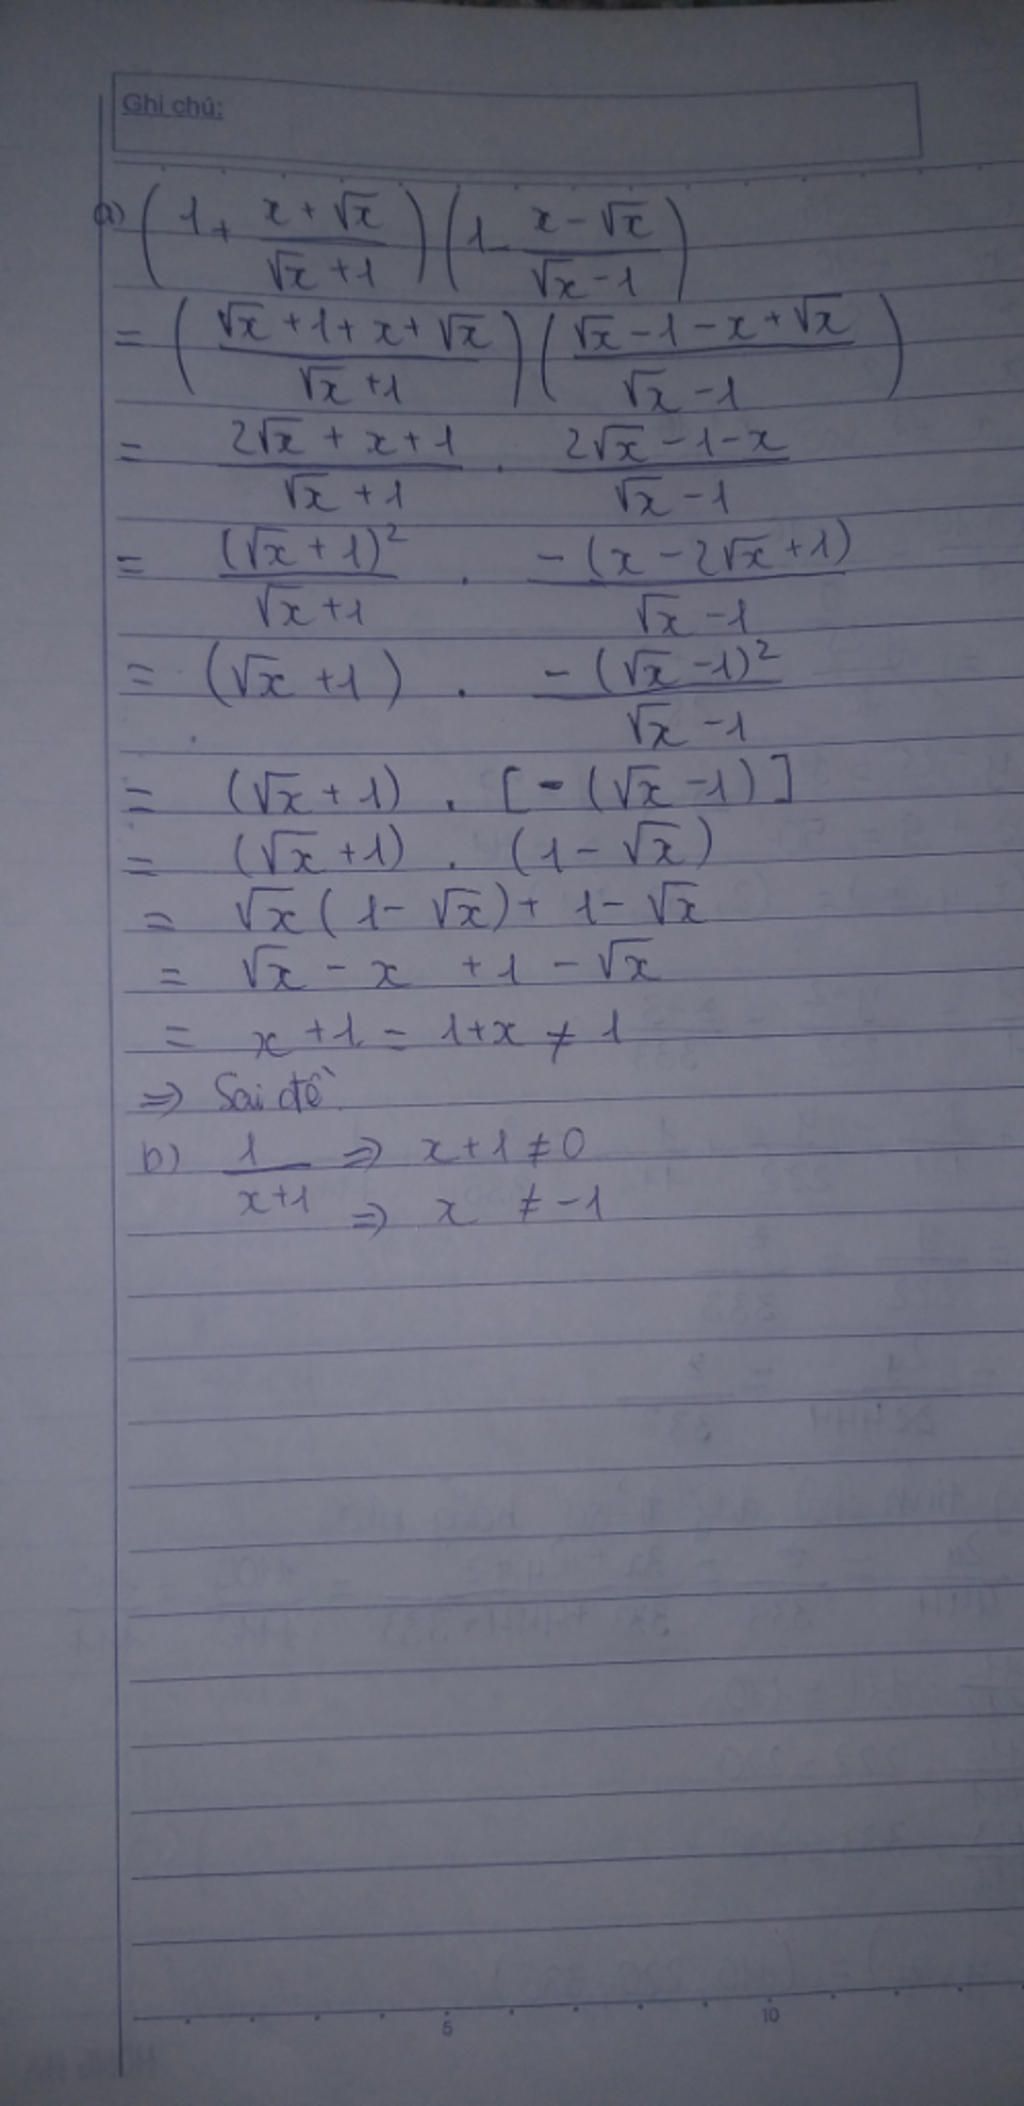 Ghi chú:
a) (1 + (x + √x)/(√x + 1)) (1 - (x - √x)/(√x - 1))
= ((√x + 1 + x + √x)/(√x + 1)) ((√x - 1 - x + √x)/(√x - 1))
= (2√x + x + 1)/(√x + 1) . (2√x - 1 - x)/(√x - 1)
= (√x + 1)²/(√x + 1) . -(x - 2√x + 1)/(√x - 1)
= (√x + 1) . -(√x - 1)²/(√x - 1)
= (√x + 1) . [-(√x - 1)]
= (√x + 1) . (1 - √x)
= √x (1 - √x) + 1 - √x
= √x - x + 1 - √x
= x + 1 = 1 + x ≠ 1
⇒ Sai đề
b) 1/(x+1) ⇒ x + 1 ≠ 0
⇒ x ≠ -1
5 10